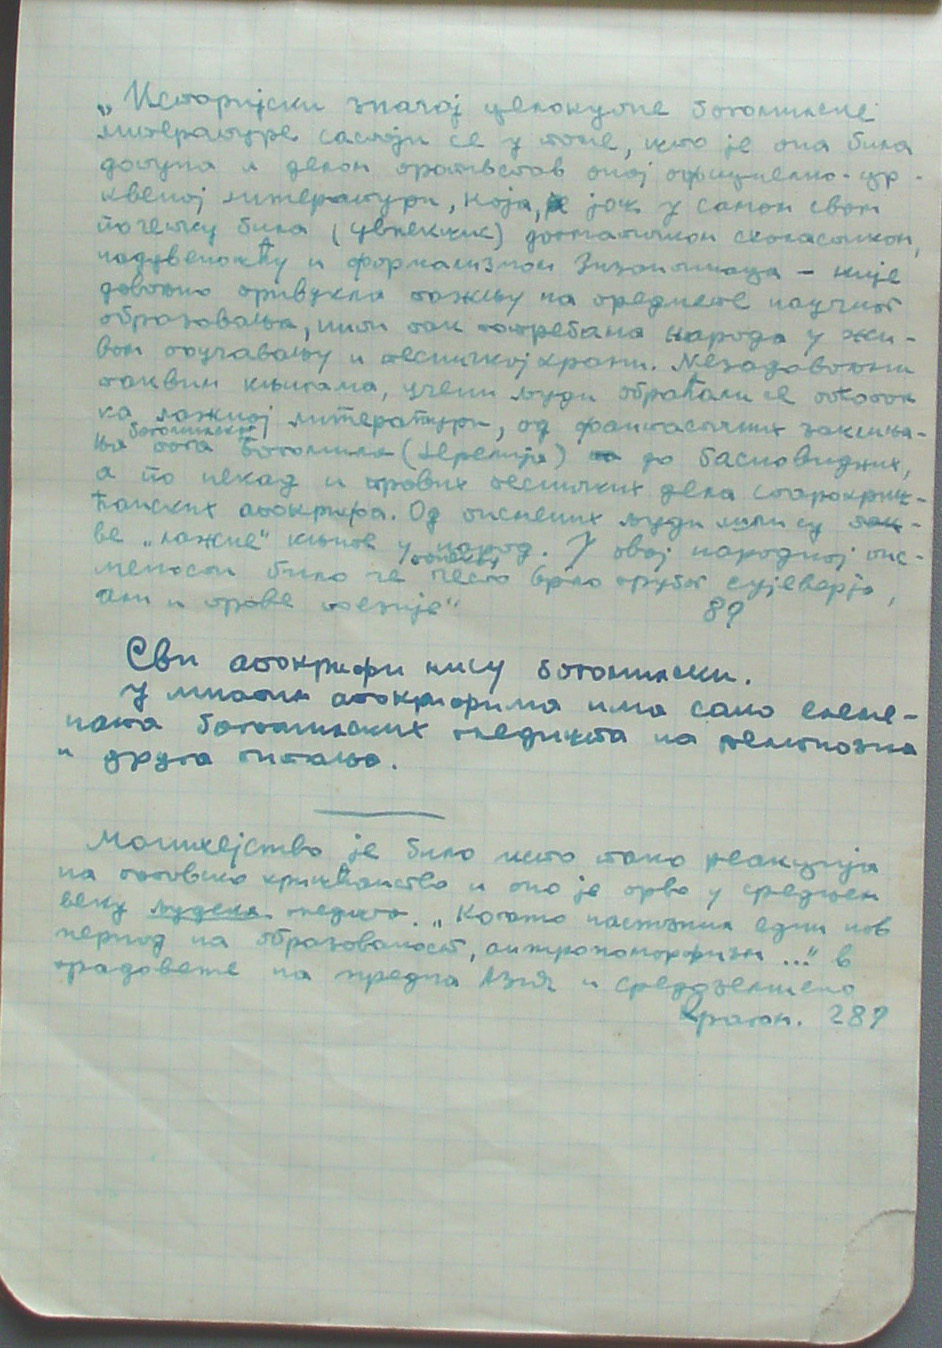 „Историјски значај целокупне богомилске
литературе састоји се у томе, што је она била
допуна и делом противстав оној официелно-цр-
квеној литератури, која, још у самом свом
почетку била догматичком схоластиком,
надувеношћу и формализмом Византинаца – није
довољно привукла пажњу на предмете научног
образовања, нити пак потребама народа у жи-
вом поучавању и песничкој храни. Незадовољни
таквим књигама, учени људи обраћали се
ка лажној литератури, од фантастичних
богомилских
попа Богомила (Јеремија) до басновидних,
а по некад и правих песничких дела старохриш-
ћанских апокрифа. Од писмених људи ишли су
ве „лажне“ књиге у народ. У овој народној пис-
мености било је често врло грубог сујеверја,
али и праве поезије“ 89
Сви апокрифи нису богомилски.
У многим апокрифима има само елеме-
ната богомилских гледишта на религиозна
и друга питања.
Манихејство је било исто тако реакција
на хришћанство и оно је прво у средњем
веку људска гледишта. „Когато настъпил един нов
период на образованост, антропоморфизм ...“ в
градовете на предна Азия и средоземно
Драгом. 289